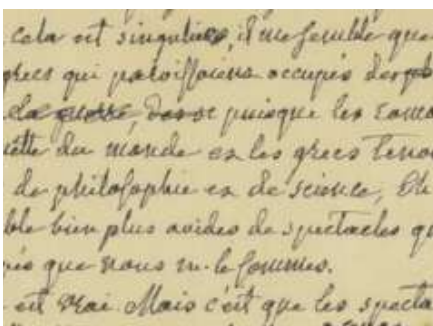 cela est singulier, il me semble que
grecs qui paroissoient occupés des
de la guerre, puisque les romo
uette du monde et les grecs tenoi
de philosophie et de science, Eh
ble bien plus avides de spectacles qu
és que nous ne le sommes.
est vrai. Mais c'est que les specta